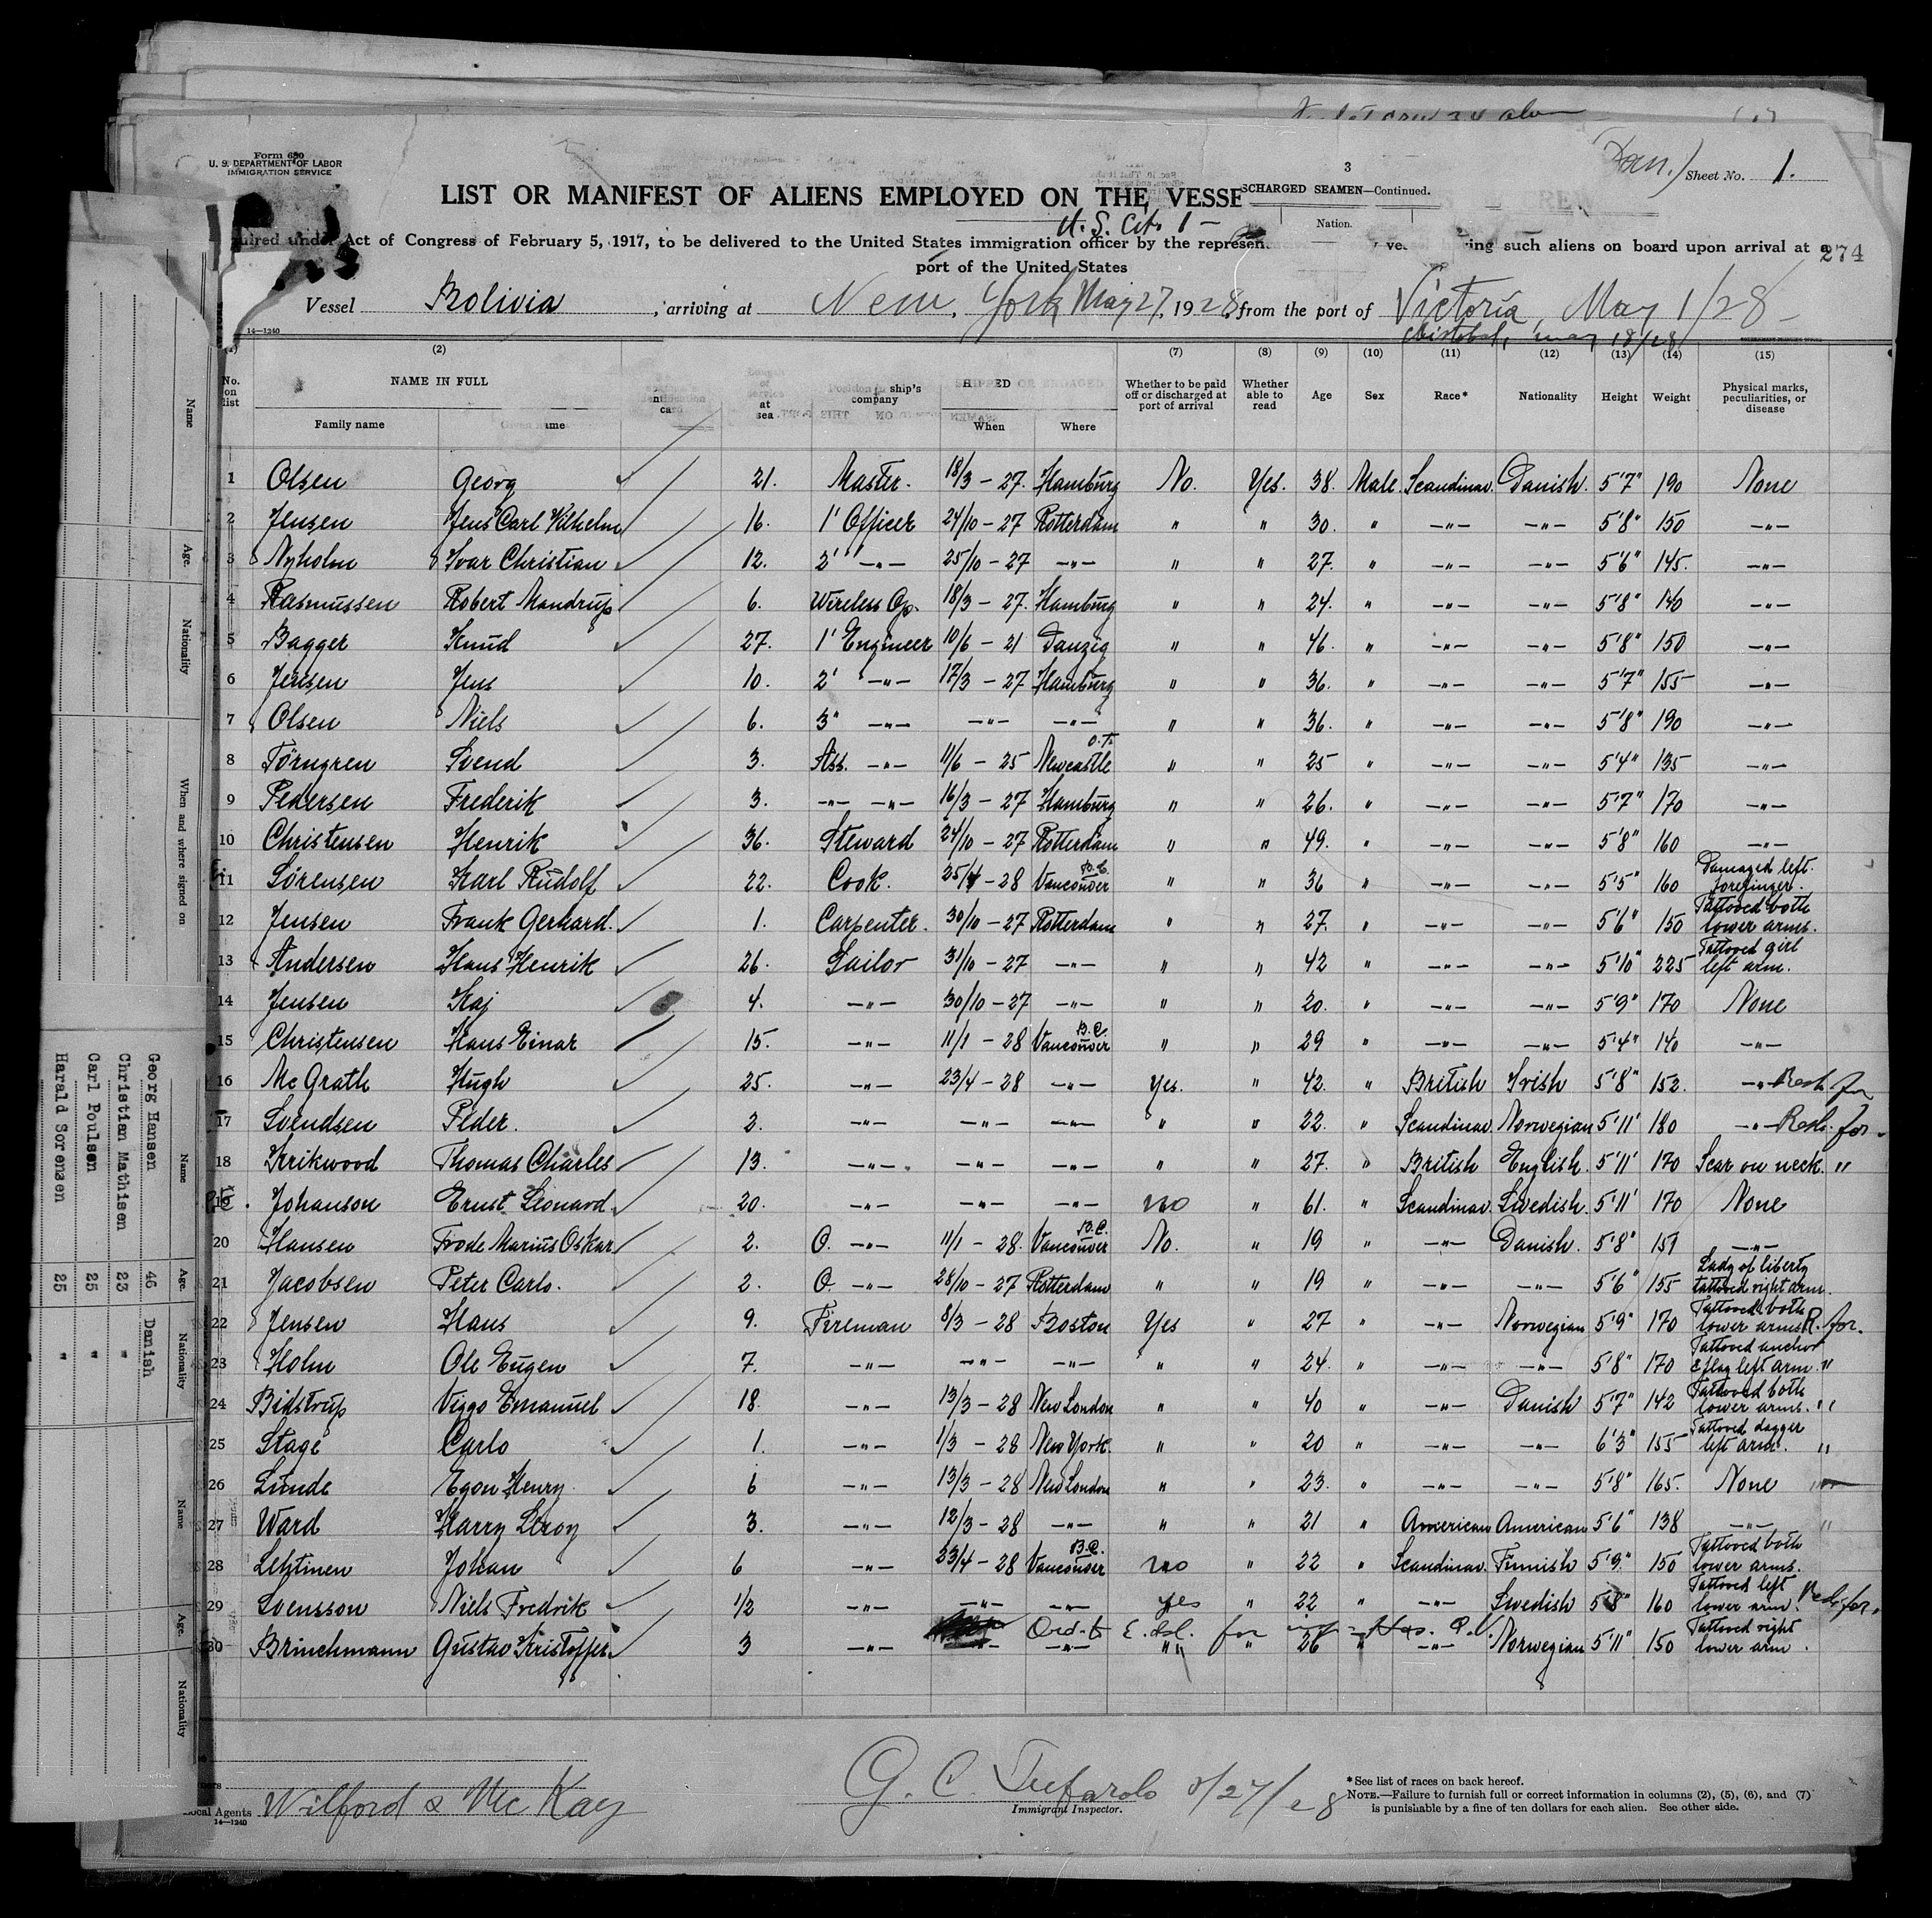 Form 680
U. S. DEPARTMENT OF LABOR
IMMIGRATION SERVICE
3
SCHARGED SEAMEN—Continued.
Nation.
Sheet No. 1.
LIST OR MANIFEST OF ALIENS EMPLOYED ON THE VESSE
U. S. Cit. 1 —
uired under Act of Congress of February 5, 1917, to be delivered to the United States immigration officer by the represen such aliens on board upon arrival at a
274
port of the United States
Vessel Bolivia, arriving at New York May 27, 1928, from the port of Victoria, May 1/28
Cristobal, May 18/28
14—1240
(1) (2) (7) (8) (9) (10) (11) (12) (13) (14) (15)
No. on list NAME IN FULL Family name card at sea ship's company SHIPPED When Where Whether to be paid off or discharged at port of arrival Whether able to read Age Sex Race* Nationality Height Weight Physical marks, peculiarities, or disease
1 Olsen Georg 21. Master. 18/3 – 27. Hamburg No. Yes. 38. Male. Scandinav. Danish. 5'7" 190 None
2 Jensen Jens Carl Vilhelm 16. 1' Officer 24/10 – 27 Rotterdam " " 30. " —"— —"— 5'8" 150 —"—
3 Nyholm Ivar Christian 12. 2' —"— 25/10 – 27 —"— " " 27. " —"— —"— 5'6" 145. —"—
4 Rasmussen Robert Mandrup 6. Wireless Op. 18/3 – 27. Hamburg " " 24. " —"— —"— 5'8" 140 —"—
5 Bagger Knud 27. 1' Engineer 10/6 – 21 Danzig " " 46. " —"— —"— 5'8" 150 —"—
6 Jensen Jens 10. 2' —"— 17/3 – 27 Hamburg " " 36. " —"— —"— 5'7" 155 —"—
7 Olsen Niels 6. 3" —"— —"— —"— " " 36. " —"— —"— 5'8" 190 —"—
8 Törngren Svend 3. Ass. —"— 11/6 – 25 Newcastle O.T. " " 25 " —"— —"— 5'4" 135 —"—
9 Pedersen Frederik 3. —"— —"— 16/3 – 27 Hamburg " " 26. " —"— —"— 5'7" 170 —"—
10 Christensen Henrik 36. Steward 24/10 – 27 Rotterdam " " 49. " —"— —"— 5'8" 160 —"—
11 Sørensen Karl Rudolf 22. Cook. 25/4 – 28 Vancouver B.C. " " 36 " —"— —"— 5'5" 160 Damaged left forefinger.
12 Jensen Frank Gerhard. 1. Carpenter. 30/10 – 27 Rotterdam " " 27. " —"— —"— 5'6" 150 Tattooed both lower arms.
13 Andersen Hans Henrik 26. Sailor 31/10 – 27 —"— " " 42 " —"— —"— 5'10" 225 Tattooed girl left arm.
14 Jensen Kaj 4. —"— 30/10 – 27 —"— " " 20. " —"— —"— 5'9" 170 None
15 Christensen Hans Einar 15. —"— 11/1 – 28 Vancouver B.C. " " 29 " —"— —"— 5'4" 140 —"—
16 Mc Grath Hugh 25. —"— 23/4 – 28 —"— Yes. " 42. " British Irish 5'8" 152. —"— Resh. for
17 Svendsen Peder. 2. —"— —"— —"— " " 22. " Scandinav. Norwegian 5'11' 180 —"— Resh. for.
18 Krikwood Thomas Charles 13. —"— —"— —"— " " 27. " British English. 5'11' 170 Scar on neck. "
19 Johanson Ernst Leonard. 20. —"— —"— —"— no " 61. " Scandinav. Swedish. 5'11' 170 None
20 Hansen Frode Marius Oskar 2. O. —"— 11/1 – 28. Vancouver B.C. No. " 19 " —"— Danish. 5'8" 151 —"—
21 Jacobsen Peter Carlo. 2. O. —"— 28/10 – 27 Rotterdam " " 19 " —"— —"— 5'6" 155 Lady of liberty tattooed right arm.
22 Jensen Hans 9. Fireman 8/3 – 28 Boston Yes " 27 " —"— Norwegian 5'9" 170 Tattooed both lower arms R. for.
23 Holm Ole Eugen 7. —"— —"— —"— " " 24. " —"— —"— 5'8" 170 Tattooed anchor & flag left arm. "
24 Bidstrup Viggo Emanuel 18. —"— 13/3 – 28 New London " " 40 " —"— Danish 5'7" 142 Tattooed both lower arms. "
25 Stage Carlo 1. —"— 1/3 – 28 New York. " " 20 " —"— —"— 6'3" 155 Tattooed dagger left arm. "
26 Lunde Egon Henry 6 —"— 13/3 – 28 New London " " 23. " —"— —"— 5'8" 165. None "
27 Ward Harry Leroy 3. —"— 12/3 – 28 —"— " " 21 " American American 5'6" 138 —"— "
28 Lehtinen Johan 6 —"— 23/4 – 28 Vancouver B.C. no " 22 " Scandinav. Finnish 5'9" 150 Tattooed both lower arms.
29 Svensson Niels Fredrik 1/2 —"— —"— —"— yes " 22 " —"— Swedish 5'8" 160 Tattooed left lower arm. Resh. for.
Ord. to E. Isl. for
30 Brinchmann Gustav Kristoffer 3 —"— —"— —"— " " 26 " —"— Norwegian 5'11" 150 Tattooed right lower arm.
Local Agents Wilford & Mc Kay
14—1240
G. C. 5/27/28
Immigrant Inspector.
*See list of races on back hereof.
NOTE.—Failure to furnish full or correct information in columns (2), (5), (6), and (7)
is punishable by a fine of ten dollars for each alien. See other side.
Name Age. Nationality When and where signed on
Name Age. Nationality
Georg Hansen 46 Danish
Christian Mathisen 23 "
Carl Poulsen 25 "
Harald Sorensen 25 "
Name Age. Nationality